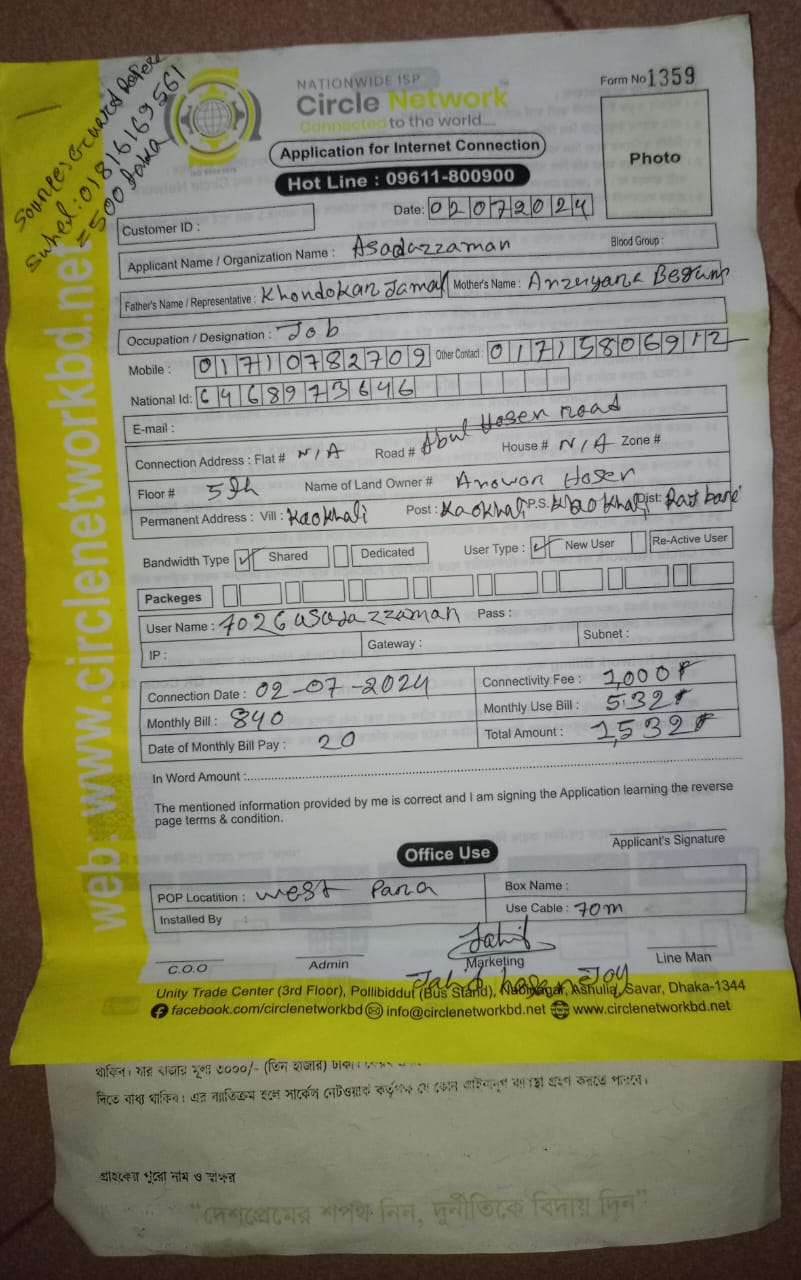 Source:
Suhel: 01816169561
= 500 taka
NATIONWIDE ISP
Circle Network
Connected to the world....
Form No 1359
Application for Internet Connection
Hot Line : 09611-800900
Photo
Date: 02072024
Customer ID :
Applicant Name / Organization Name : Asadazzaman Blood Group :
Father's Name / Representative : Khondokar Jamal Mother's Name : Begum
Occupation / Designation : Job
Mobile : 01710782709 Other Contact : 01715806912
National Id: 6468973646
E-mail :
Connection Address : Flat # N/A Road # Abul Hosen road House # N/A Zone #
Floor # 5th Name of Land Owner # Anowar Hosen
Permanent Address : Vill : Kaokhali Post : Kaokhali P.S. Kaokhali Dist:
Bandwidth Type ✓ Shared Dedicated User Type : ✓ New User Re-Active User
Packeges
User Name : 7026asadazzaman Pass :
IP : Gateway : Subnet :
Connection Date : 02-07-2024 Connectivity Fee : 1,000
Monthly Bill : 840 Monthly Use Bill : 532
Date of Monthly Bill Pay : 20 Total Amount : 1,532
In Word Amount :
The mentioned information provided by me is correct and I am signing the Application learning the reverse
page terms & condition.
Applicant's Signature
Office Use
POP Locatition : west Para Box Name :
Installed By : Use Cable : 70m
Jahid
C.O.O Admin Marketing Line Man
Jahid hasan Joy
Unity Trade Center (3rd Floor), Pollibiddut (Bus Stand), Nabinagar, Ashulia, Savar, Dhaka-1344
facebook.com/circlenetworkbd info@circlenetworkbd.net www.circlenetworkbd.net
web: www.circlenetworkbd.net
থাকিব। যার বাজার মূল্য ৩০০০/- (তিন হাজার) টাকা।
দিতে বাধ্য থাকিব। এর ব্যতিক্রম হলে সার্কেল নেটওয়ার্ক কর্তৃপক্ষ যে কোন আইনানুগ ব্যবস্থা গ্রহণ করতে পারবে।
গ্রাহকের পুরো নাম ও স্বাক্ষর
"দেশপ্রেমের শপথ নিন, দুর্নীতিকে বিদায় দিন"